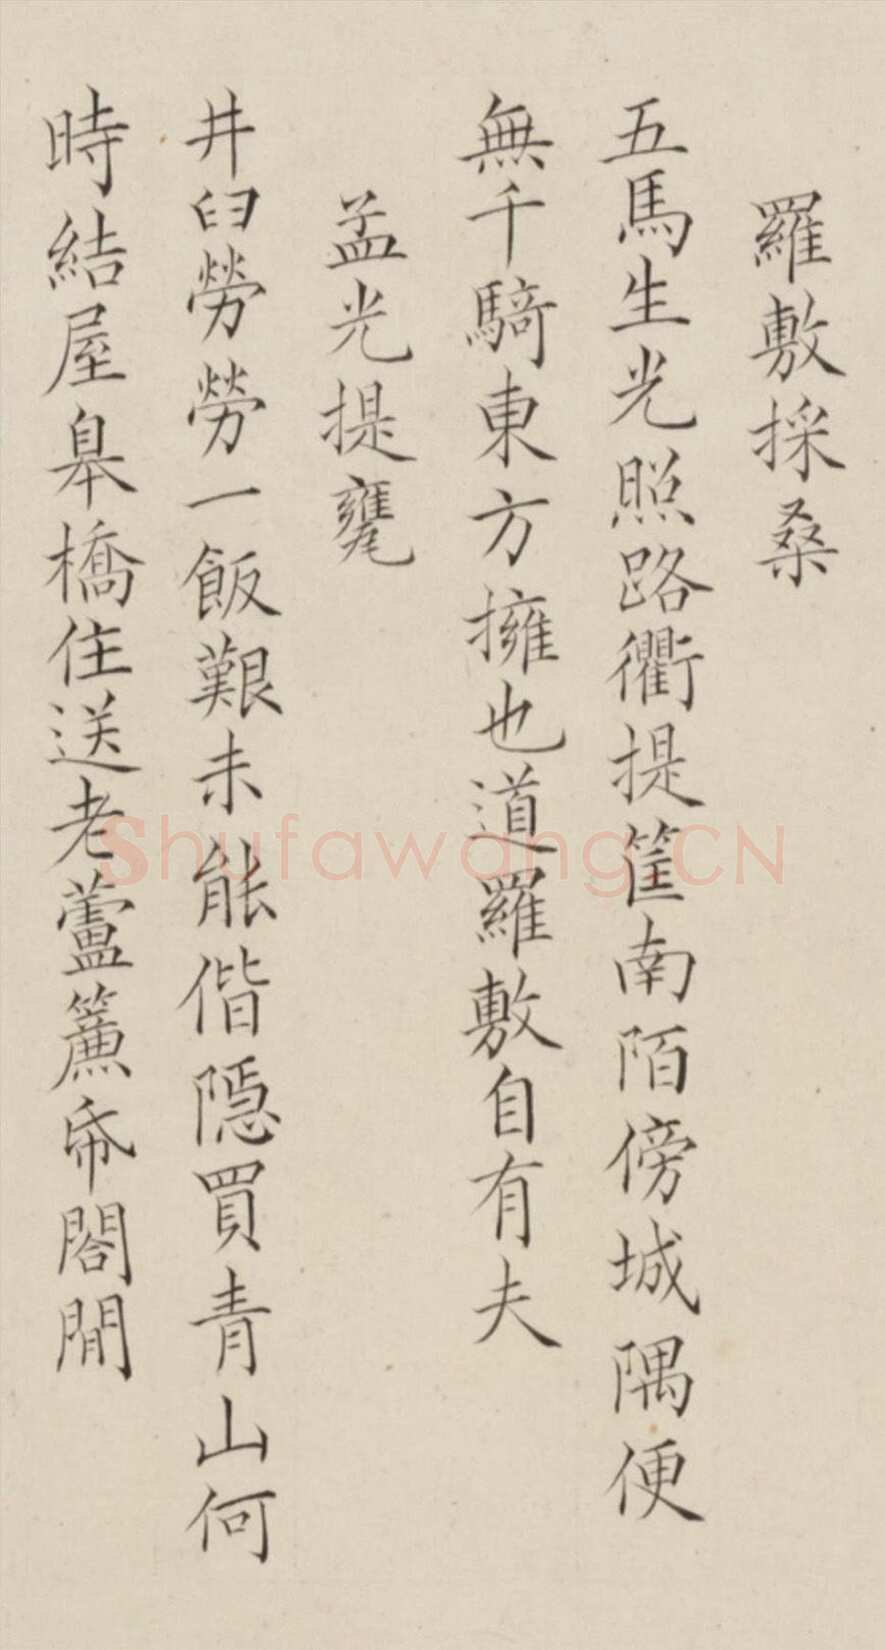 羅敷採桑
五馬生光照路衢提筐南陌傍城隅便
無千騎東方擁也道羅敷自有夫
孟光提甕
井臼勞勞一飯艱未能偕隱買青山何
時結屋臯橋住送老蘆簾帋閣閒
Shufawang.CN